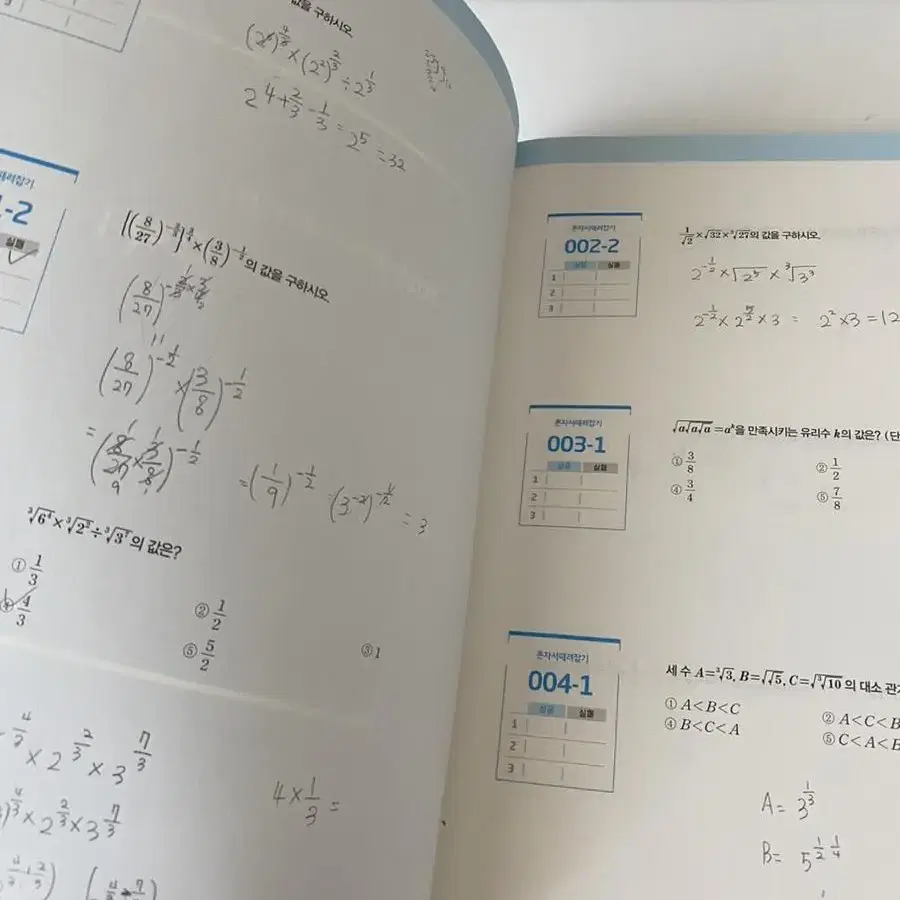 값을 구하시오.
(2⁶)^{4/6} × (2²)^{2/3} ÷ 2^{1/3}
2^{4+2/3-1/3} = 2⁵ = 32
-2
실패
의 값을 구하시오.
(8/27)
(8/27)^{-1/2} × (3/8)^{-1/2}
= (8/27 × 3/8)^{-1/2} = (1/9)^{-1/2} (3^{-2})^{-1/2} = 3
의 값은?
① 1/3
② 1/2
③ 1
④ 4/3
⑤ 5/2
× 2^{2/3} × 3^{7/3}
× 2^{2/3} × 3^{7/3}
4 × 1/3 =
혼자서때려잡기
002-2
성공 실패
1
2
3
1/√2 × √32 × ³√27의 값을 구하시오.
2^{-1/2} × √2⁵ × ³√3³
2^{-1/2} × 2^{5/2} × 3 = 2² × 3 = 12
혼자서때려잡기
003-1
성공 실패
1
2
3
√a√a√a = a^k을 만족시키는 유리수 k의 값은? (단
① 3/8
② 1/2
④ 3/4
⑤ 7/8
혼자서때려잡기
004-1
성공 실패
1
2
3
세 수 A=³√3, B=√√5, C=√³√10 의 대소 관계
① A<B<C
② A<C<B
④ B<C<A
⑤ C<A<B
A = 3^{1/3}
B = 5^{1/2 1/4}